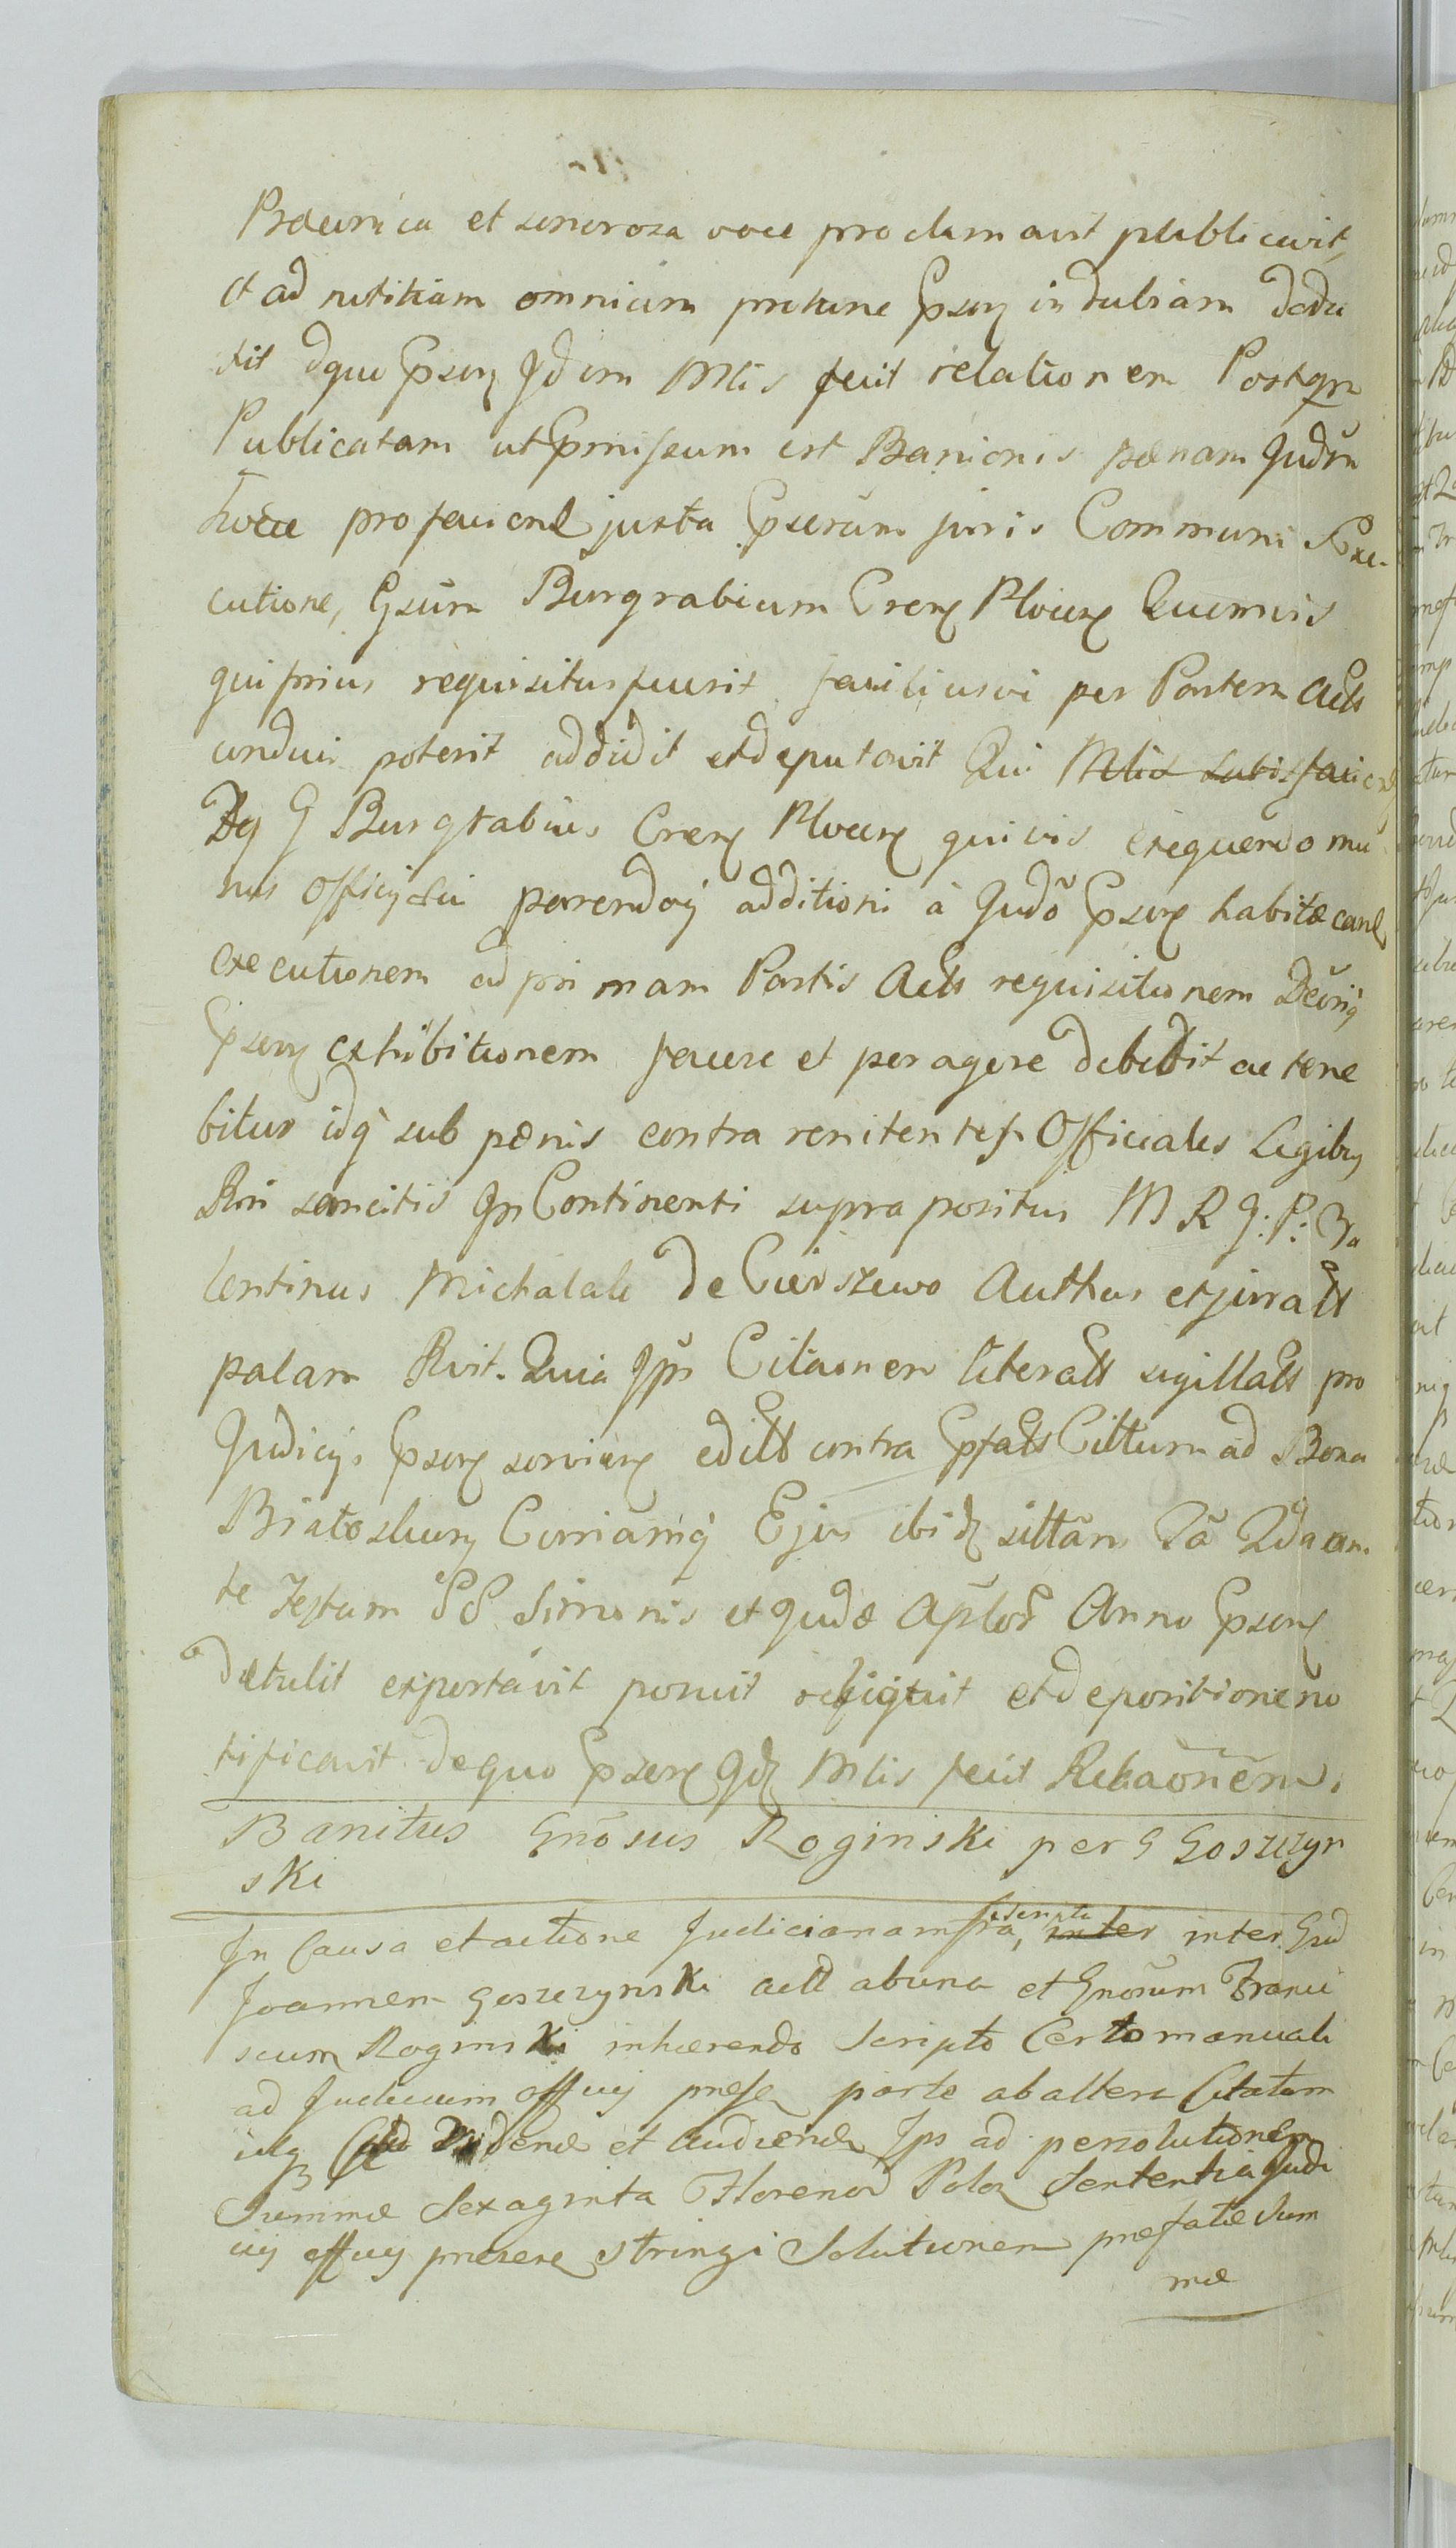 Præconica et sonoroza voce proclamavit publicavit,
et ad notitiam omnium protunc Epsen induliam dedu
xit dquo Epsen Jdem Mlis fecit relationem Postqm
Publicatam ut Epmissum est Banionis pænam Judm
hocce pro faciend juxta Epserūm juris Communi Exe-
cutione, Gsūm Burgrabium Cren Plocen Quemvis
qui prius requisitus fuerit faciliusvi per Partem Actt
conduci poterit addidit et deputavit Qui Mlis satisfaciend
Dg G Burgrabius Cren Plocen quivis exequendo mu
nus Officij sui parendoq additioni à Judō Epsen habitæ eand
executionem ad primam Partis Actt requisitionem Decriq
Epsen exhibitionem facere et peragere debebit ac tene
bitur idq sub pænis contra renitentes Officiales Legibus
Rni sancitis Jn Continenti supra positus M R J: P: Va
lentinus Michalak de Cierszewo Authus et juratt
palam Rvit. Quia Jps Citaonem literatt sigillatt pro
Judicijs Epsen servien editt contra Epfatt Cittum ad Bona
Białoskury Curriamq Ejus ibid sittam Ra 2da an-
te Festum SS Simonis et Judæ Aplor Anno Epsen
detulit exportavit posuit reliquit et depositione no
tificavit de quo Epsen Jd Mlis fecit Relaonem.
Banitus Gnosus Roginski per G Goszczyn
ski
In Causa et actione Judiciaria infra scripta, inter inter Gnd
Joannem Goszczynski actt ab una et Gnosum Franci
scum Roginski inhærendo Scripto Certo manuali
ad Judicium Officij præse parte ab altera Citatum
Videnda et Audienda Ips ad persolutionem
Summæ Sexaginta Florenor Polon Sententia Judi
cij Officij præsen stringi Solutionem præfatæ Sum
mæ